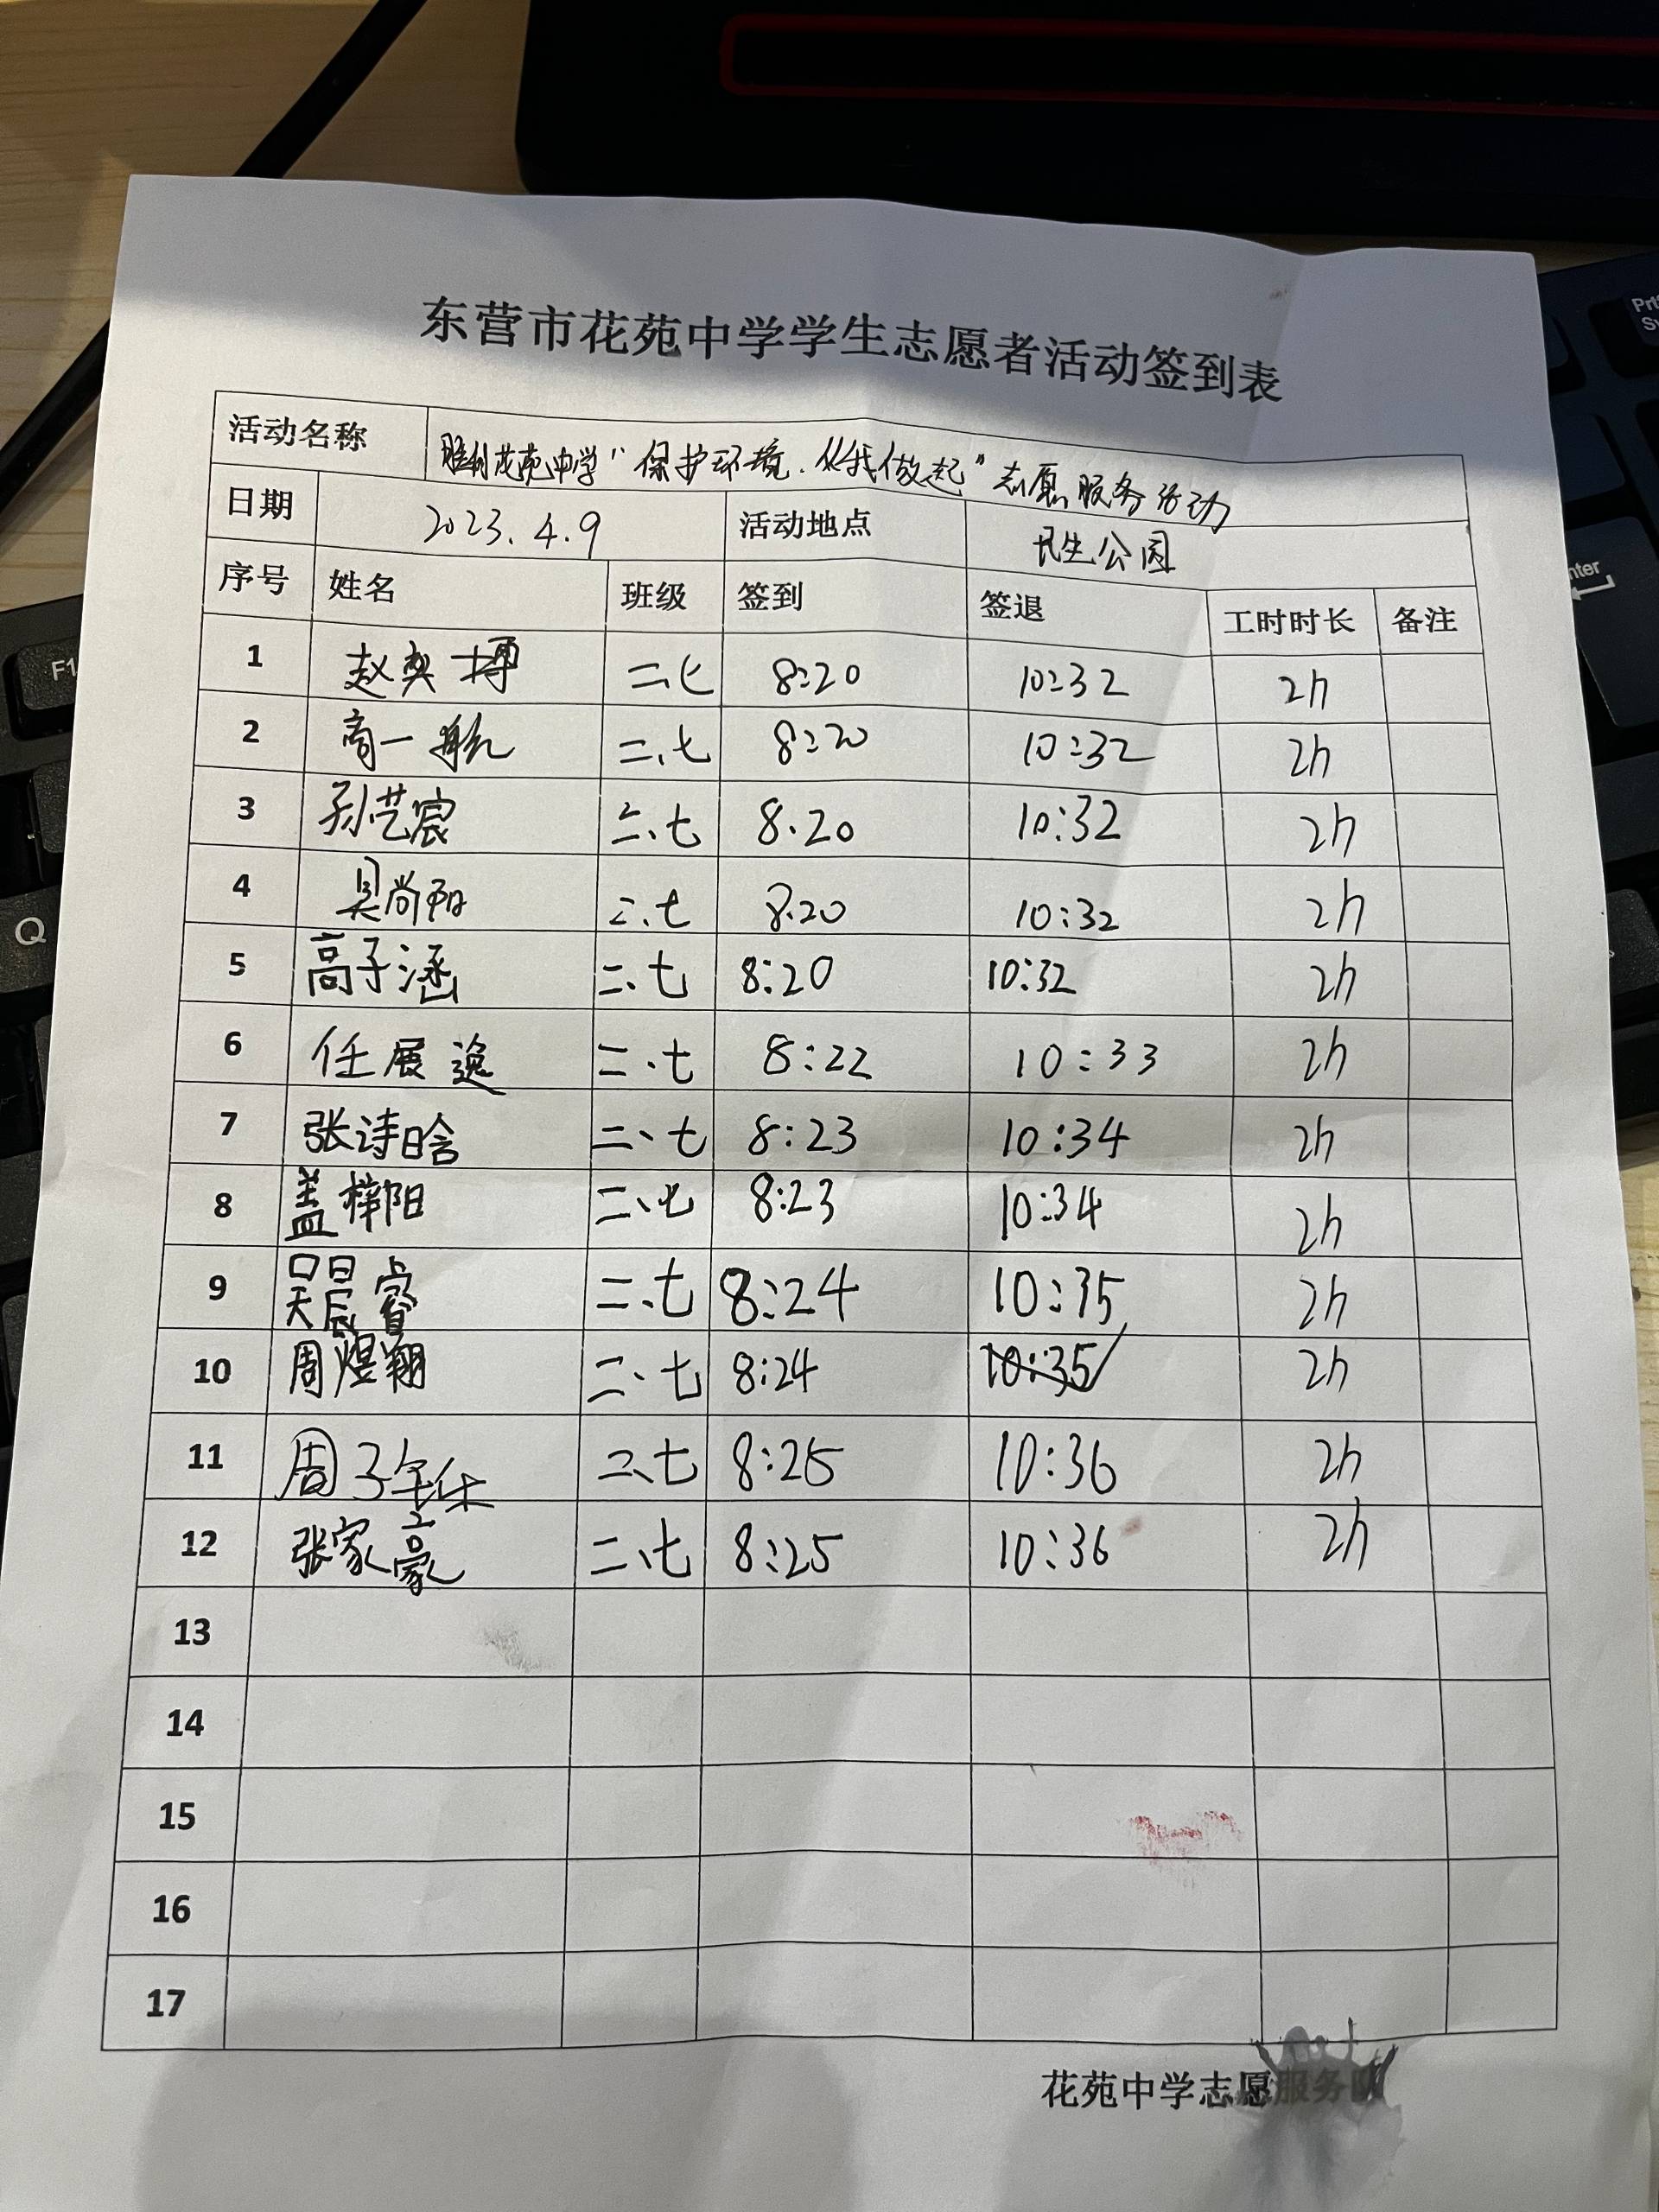 东营市花苑中学学生志愿者活动签到表
活动名称 胜利花苑中学“保护环境.从我做起”志愿服务活动
日期 2023.4.9 活动地点 民生公园
序号 姓名 班级 签到 签退 工时时长 备注
1 赵奕博 二、七 8:20 10:32 2h
2 商一航 二、七 8:20 10:32 2h
3 孙艺宸 二、七 8.20 10:32 2h
4 吴尚阳 二.七 8.20 10:32 2h
5 高子涵 二、七 8:20 10:32 2h
6 任展逸 二.七 8:22 10:33 2h
7 张诗晗 二、七 8:23 10:34 2h
8 盖梓阳 二、七 8:23 10:34 2h
9 吴晨睿 二、七 8:24 10:35 2h
10 周煜翔 二、七 8:24 10:35 2h
11 周子 二、七 8:25 10:36 2h
12 张家豪 二、七 8:25 10:36 2h
13
14
15
16
17
花苑中学志愿服务队
Prt
Sy
Enter
F1
Q